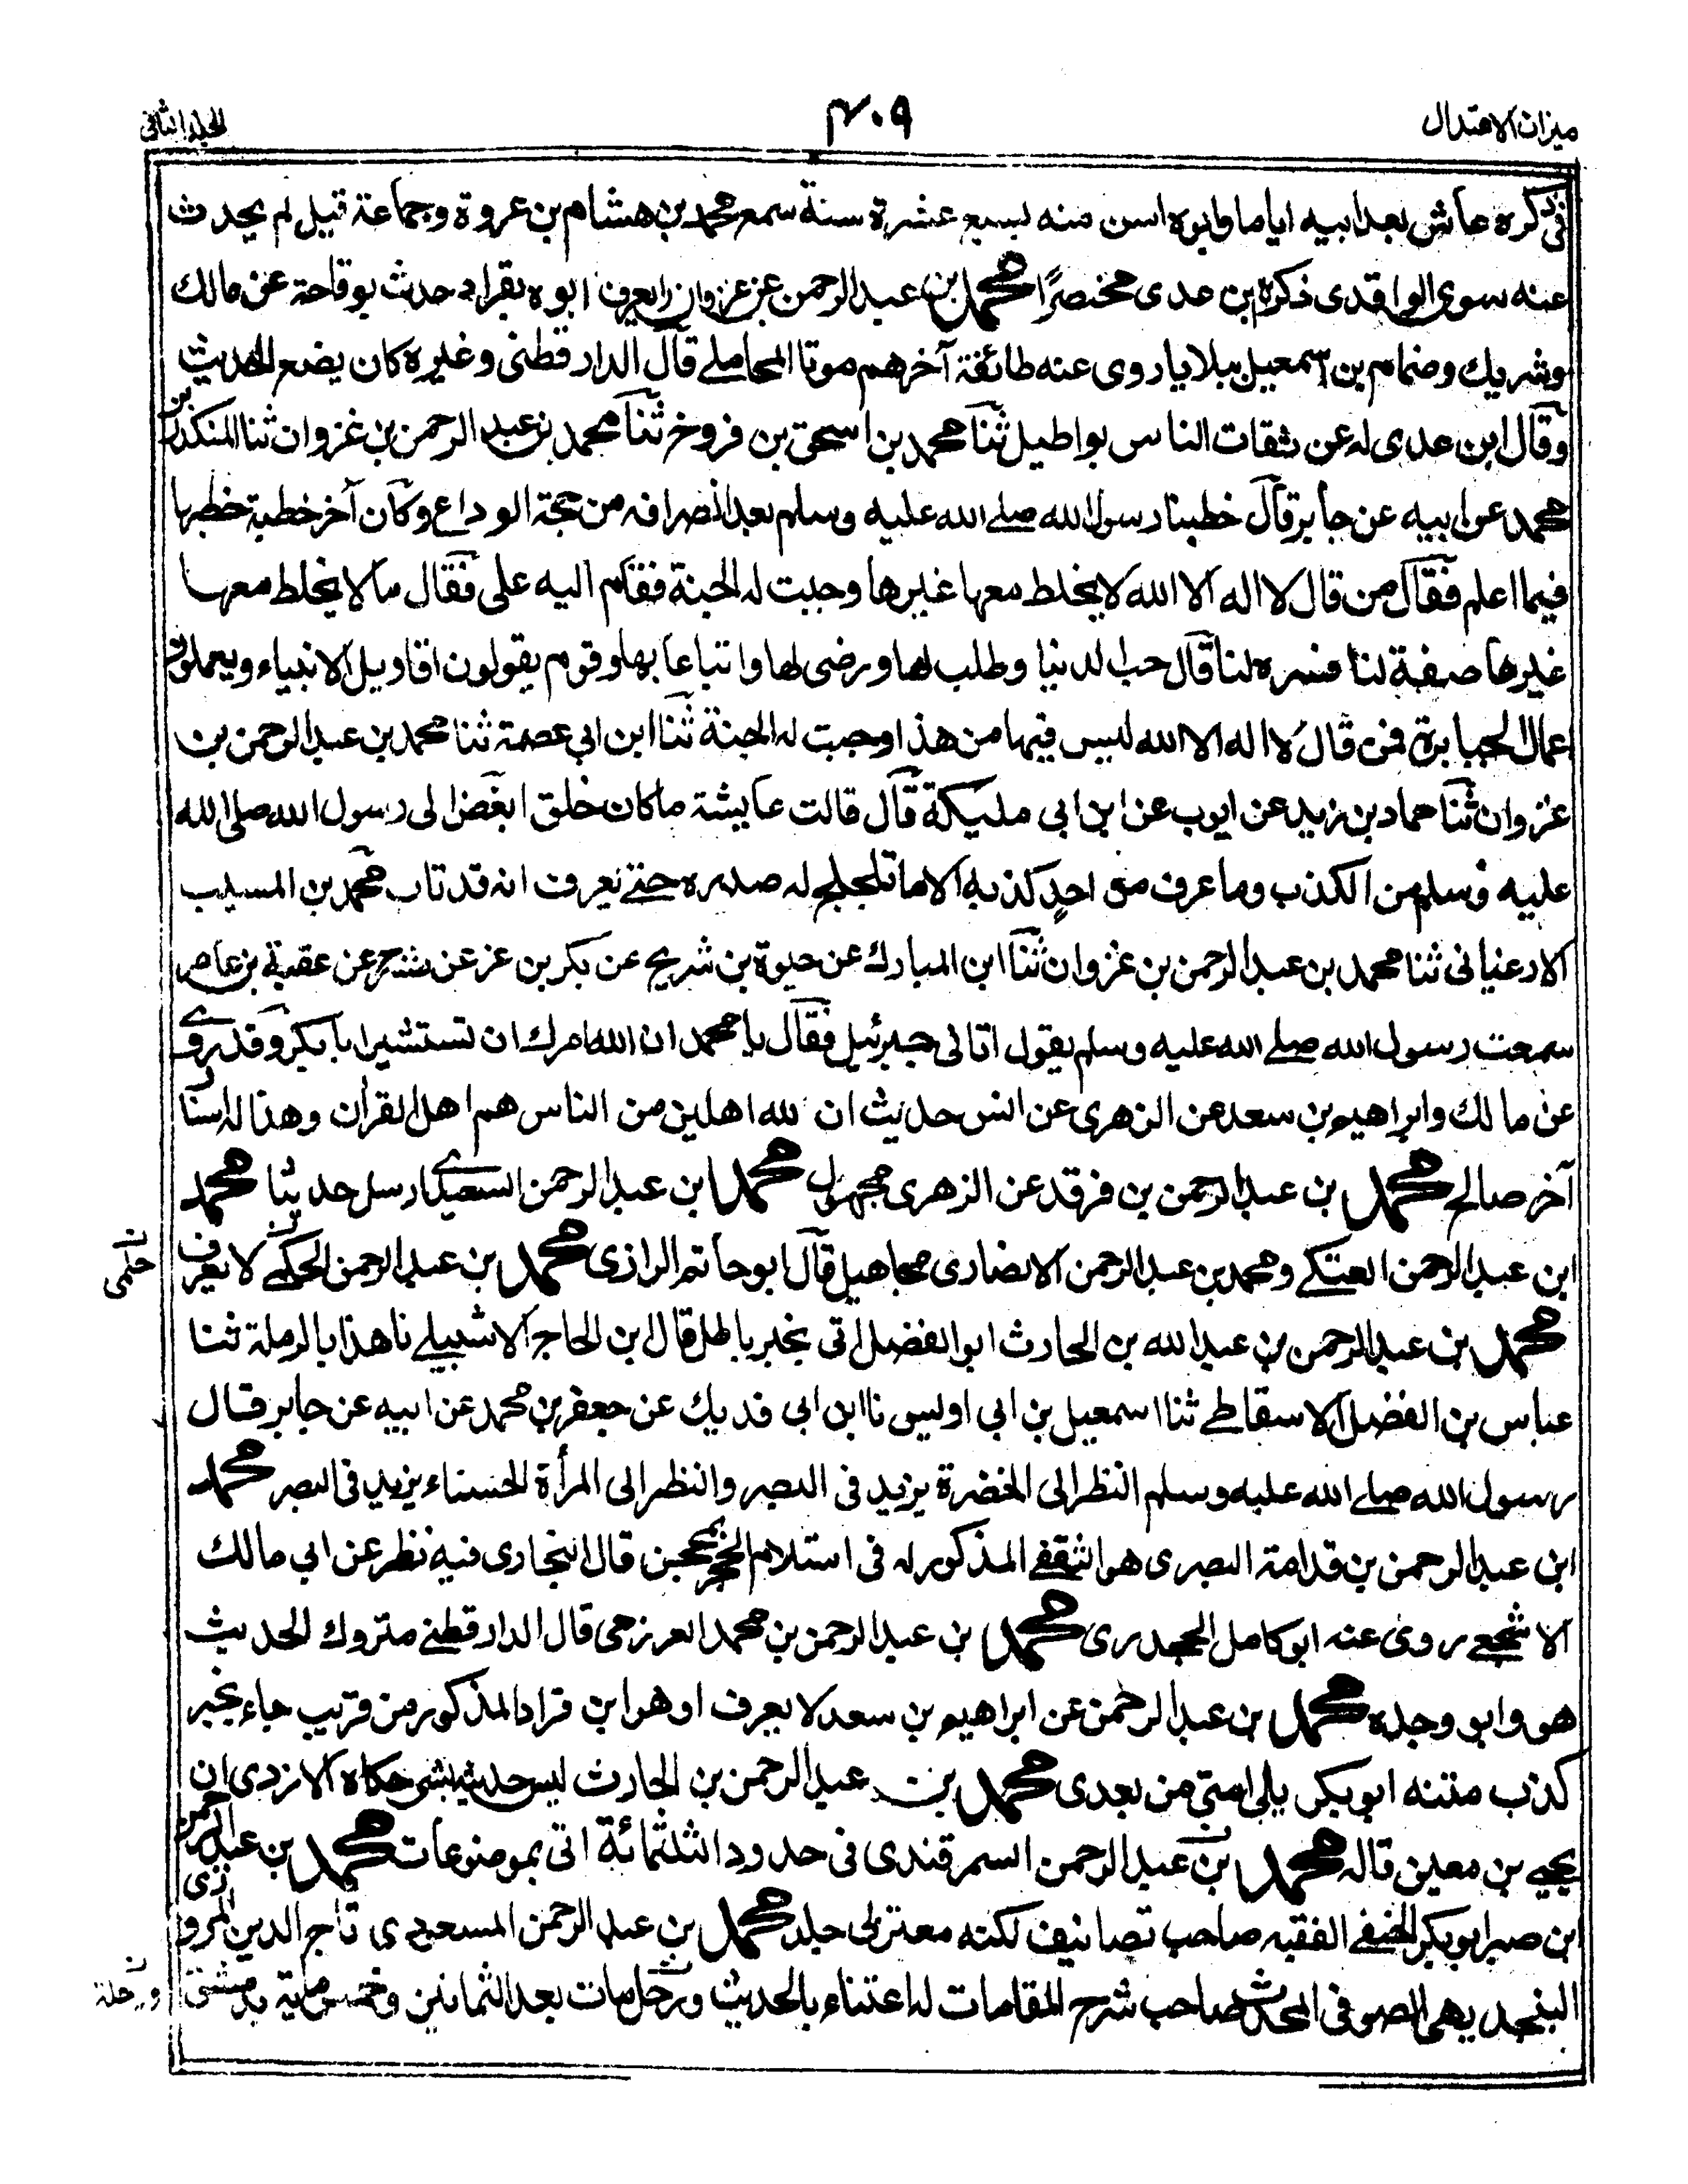 ميزان الاعتدال
٤٠٩
المجلد الثانى
فى ذكره عاش بعد ابيه اياما وابوه اسن منه بسبع عشرة سنة سمع محمد بن هشام بن عروة وجماعة قيل لم يحدث
عنه سوى الواقدى ذكره بن عدى مختصرًا محمد بن عبد الرحمن بن غزوان ابوه بقراد حدث بوقاحة عن مالك
وشريك وضمام بن اسمعيل ببلايا روى عنه طائفة آخرهم موتا المحاملے قال الدارقطنى وغيره كان يضع الحديث
وقال ابن عدى له عن ثقات الناس بواطيل ثنا محمد بن اسحق بن فروخ ثنا محمد بن عبد الرحمن بن غزوان ثنا المنكدر بن
محمد عن ابيه عن جابر قال خطبنا رسول الله صلے الله عليه وسلم بعد انصرافه من حجة الوداع وكان آخر خطبة خطبها
فيما اعلم فقال من قال لا اله الا الله لا يخلط معها غيرها وجبت له الجنة فقام اليه على فقال ما لا يخلط معها
غيرها صفة لنا فسره لنا قال حب الدنيا وطلب لها ورضى لها واتباعا بها وقوم يقولون اقاويل الانبياء ويعملون
اعمال الجبابرة فمن قال لا اله الا الله ليس فيها من هذا وجبت له الجنة ثنا ابن ابى عصمة ثنا محمد بن عبد الرحمن بن
غزوان ثنا حماد بن زيد عن ايوب عن ابن ابى مليكة قال قالت عايشة ما كان خلق ابغض الى رسول الله صلى الله
عليه وسلم من الكذب وما عرف من احد كذبه الا ما تلجلج له صدره حتے يعرف انه قد تاب محمد بن المسيب
الارغيانى ثنا محمد بن عبد الرحمن بن غزوان ثنا ابن المبارك عن حيوة بن شريح عن بكر بن عن مشرح عن عقبة بن عامر
سمعت رسول الله صلے الله عليه وسلم يقول اتانى جبرئيل فقال يا محمد ان الله امرك ان تستشير ابا بكر وقد روے
عن مالك وابراهيم بن سعد عن الزهرى عن انس حديث ان لله اهلين من الناس هم اهل القرآن وهذا له اسناد
آخر صالح محمد بن عبد الرحمن بن فرقد عن الزهرى مجهول محمد ابن عبد الرحمن السعيدے ارسل حديثا محمد
ابن عبد الرحمن العتكے ومحمد بن عبد الرحمن الانصارى مجاهيل قال ابو حاتم الرازى محمد بن عبد الرحمن لا يعرف
محمد بن عبد الرحمن بن عبد الله بن الحارث ابو الفضل اتى بخبر باطل قال ابن الحاج الاشبيلے نا هذا بالرملة ثنا
عباس بن الفضل الاسقاطے ثنا اسمعيل بن ابى اويس نا ابن ابى فديك عن جعفر بن محمد عن ابيه عن جابر قال
رسول الله صلے الله عليه وسلم النظر الى الخضرة يزيد فى البصر والنظر الى المرأة الحسناء يزيد فى البصر محمد
ابن عبد الرحمن بن قدامة البصرى هو الثقفے المذكور له فى استلام الحجر بمحجن قال البخارى فيه نظر عن ابى مالك
الاشجعے روى عنه ابو كامل الجحدرى محمد بن عبد الرحمن بن محمد العرزمى قال الدارقطنے متروك الحديث
هو وابو وجده محمد بن عبد الرحمن عن ابراهيم بن سعد لا يعرف او هو ابن قراد المذكور من قريب جاء بخبر
كذب متنه ابو بكر يلى امتى من بعدى محمد بن عبد الرحمن بن الحارث ليس حديثه بشى حكاه الازدى ان
يحيے بن معين قاله محمد بن عبد الرحمن السمرقندى فى حدود الثلثمائة اتى بموضوعات محمد بن عبد الرحمن
ابن صبر ابو بكر الحنفے الفقيه صاحب تصانيف لكنه معتزلى جلد محمد بن عبد الرحمن المسعودى تاج الدين المروزى
البنجديهى الصوفى المحدث صاحب شرح المقامات له اعتناء بالحديث ورحل مات بعد الثمانين وخمس مائة بدمشق
ورحلة